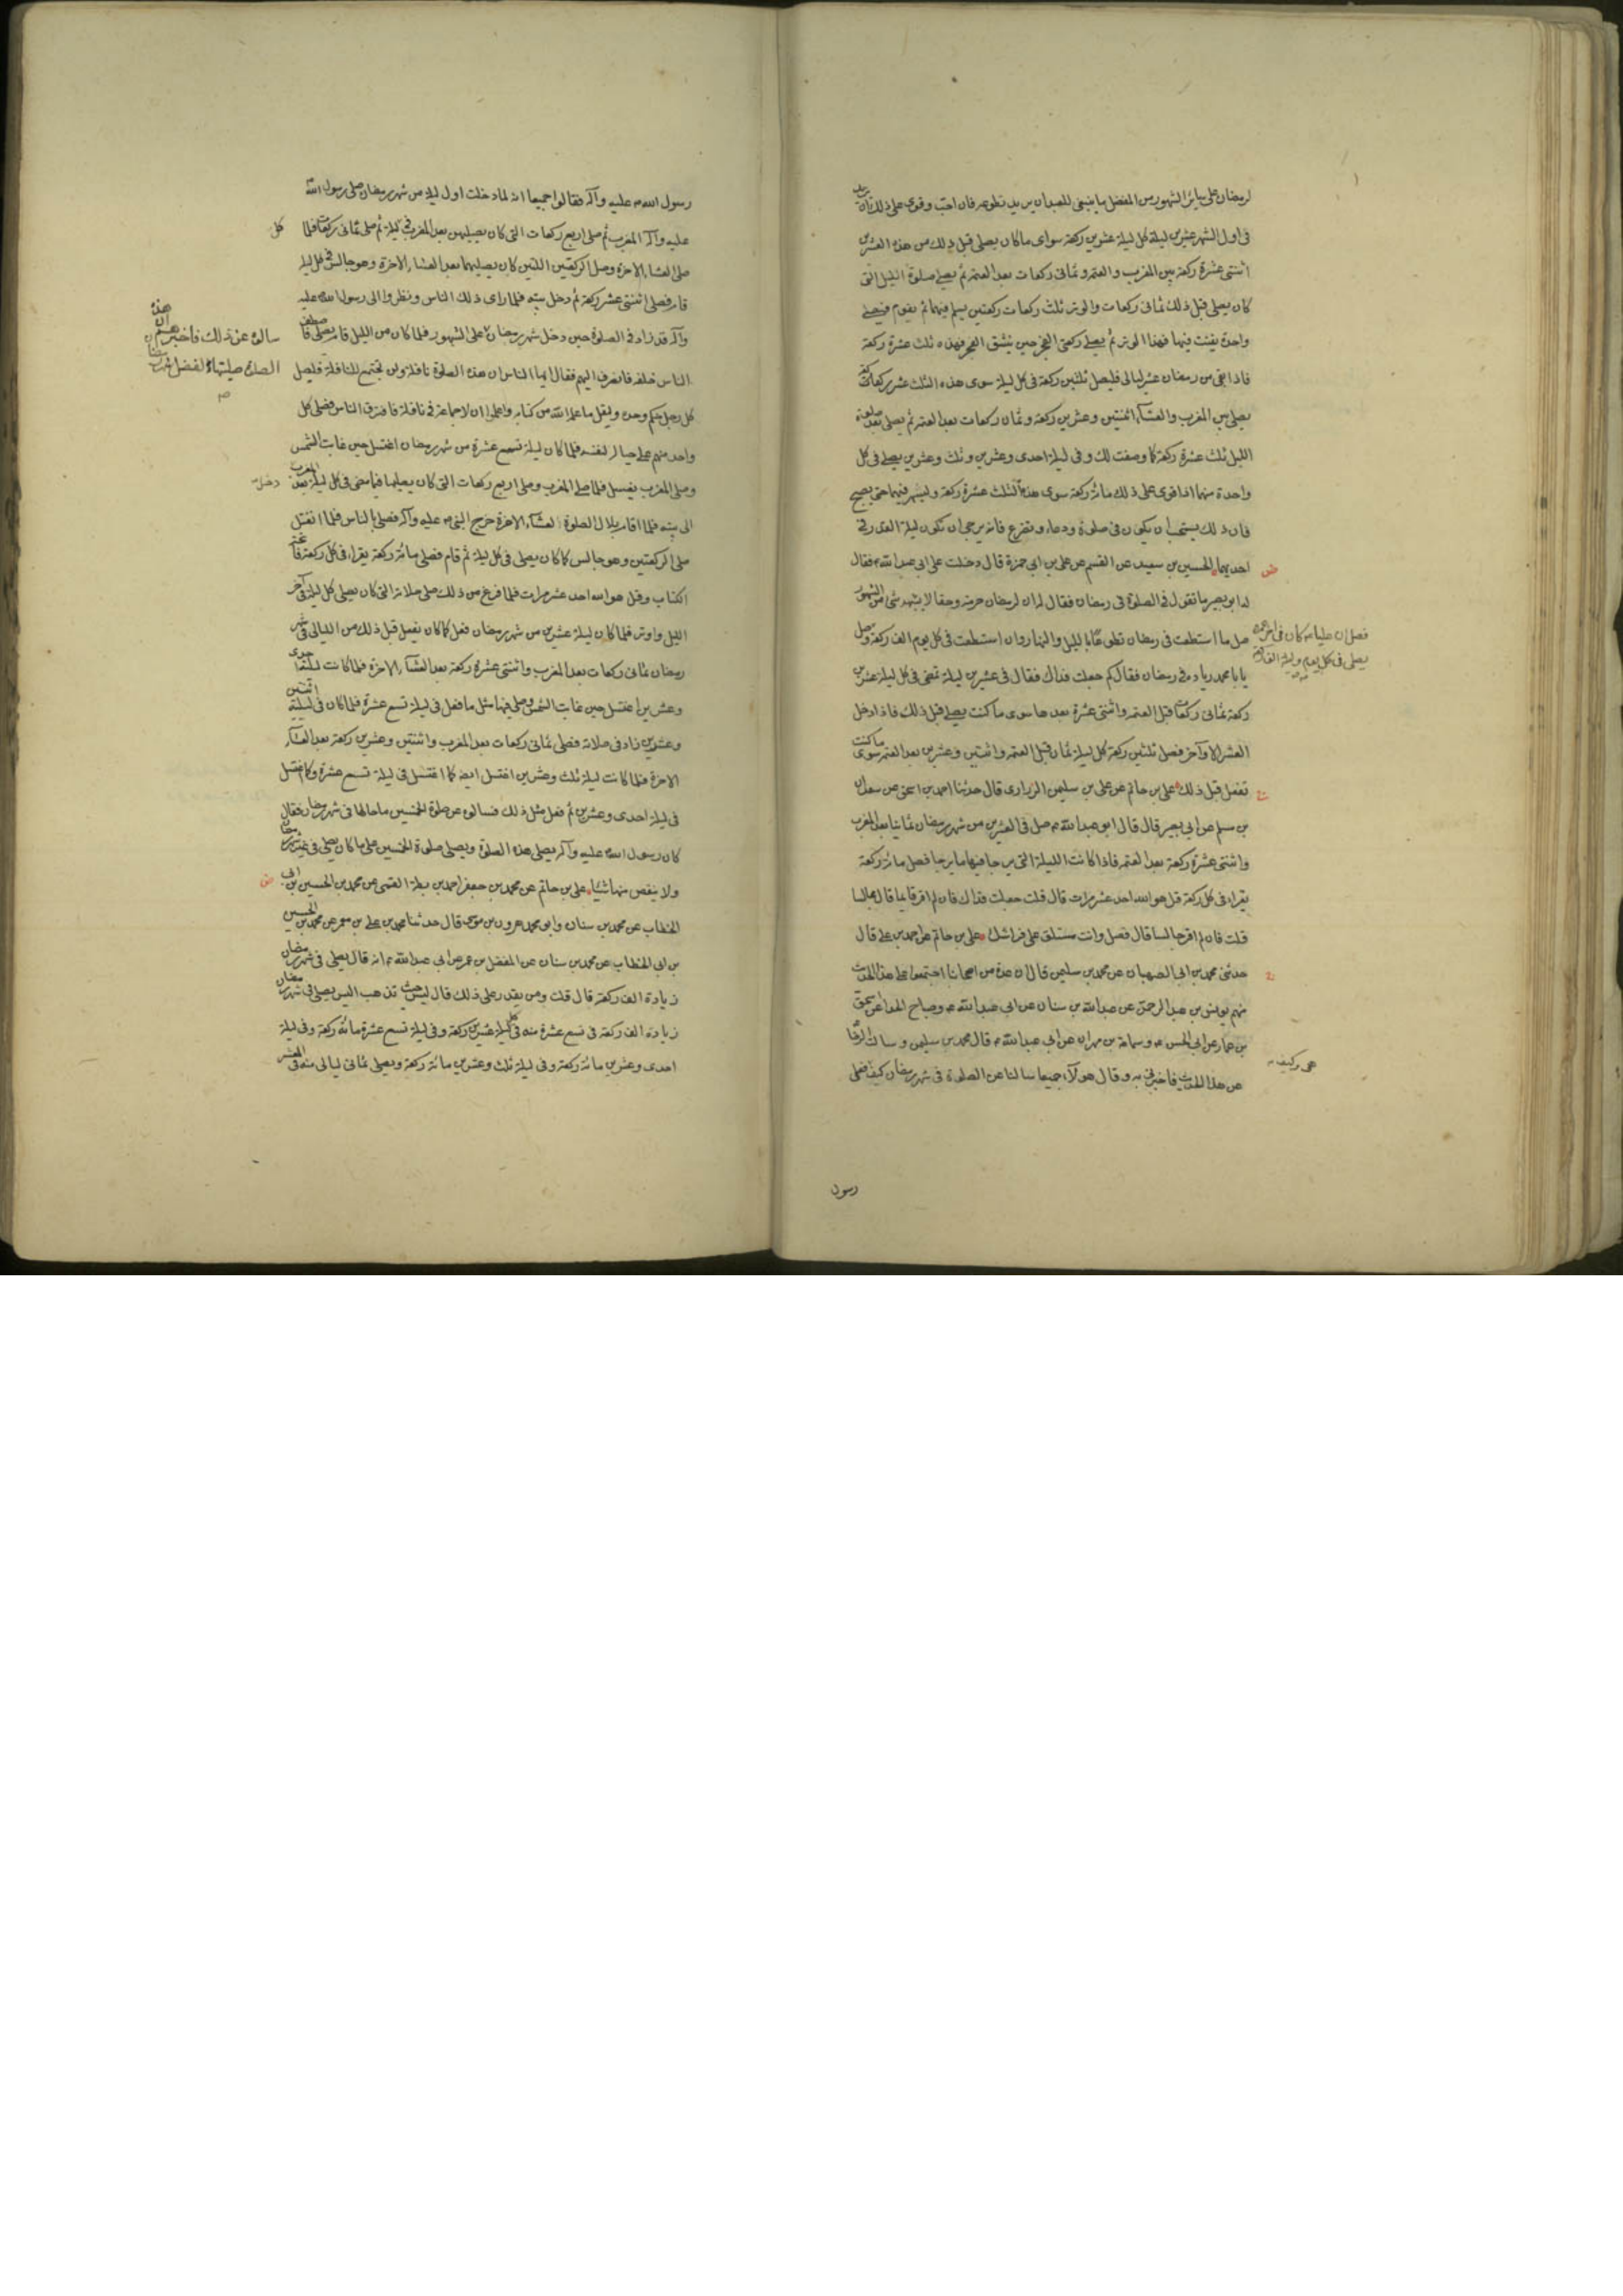 لرمضان على سائر الشهور من الفضل ما ينبغى للعبد ان يزيد فى تطوعه فان احب وقوى على ذلك ان يزيد
فى اول الشهر عشرين ليلة كل ليلة عشرين ركعة سوى ما كان يصلى قبل ذلك من هذه العشرين
اثنتى عشرة ركعة بين المغرب والعتمه وثمانى ركعات بعد العتمه ثم يصلى صلوة الليل التى
كان يصلى قبل ذلك ثمانى ركعات والوتر ثلث ركعات ركعتين يسلم فيهما ثم يقوم فيصلى
واحدة يقنت فيها فهذا الوتر ثم يصلى ركعتى الفجر حين ينشق الفجر فهذه ثلث عشرة ركعة
فاذا بقى من رمضان عشر ليالى فليصل ثلثين ركعة فى كل ليلة سوى هذه الثلث عشر ركعة
يصلى بين المغرب والعشاء اثنتين وعشرين ركعة وثمان ركعات بعد العتمه ثم يصلى بعد صلوة
الليل ثلث عشرة ركعة كما وصفت لك وفى ليلة احدى وعشرين وثلث وعشرين يصلى فى كل
واحدة منهما اذا قوى على ذلك مائة ركعة سوى هذه الثلث عشرة ركعة وليسهر فيهما حتى يصبح
فان ذلك يستحب ان يكون فى صلوة ودعاء وتضرع فانه يرجى ان تكون ليلة القدر فى
احديهما الحسين بن سعيد عن القسم عن على بن ابى حمزة قال دخلت على ابى عبد الله ع فقال
له ابو بصير ما تقول فى الصلوة فى رمضان فقال له ان لرمضان حرمة وحقا لا يشبهه شئ من الشهور
صل ما استطعت فى رمضان تطوعا بالليل والنهار وان استطعت فى كل يوم الف ركعة فصل
فصل ان عليا ع كان فى اخر عمره
يصلى فى كل يوم وليلة الف ركعة
يا با محمد زيادة فى رمضان فقال كم جعلت فداك فقال فى عشرين ليلة تمضى فى كل ليلة عشرين
ركعة ثمانى ركعات قبل العتمه واثنتى عشرة بعدها سوى ما كنت يصلى قبل ذلك فاذا دخل
العشر الاواخر فصل ثلثين ركعة كل ليلة ثمان قبل العتمه واثنتين وعشرين بعد العتمه سوى ما كنت
تفعل قبل ذلك على بن حاتم عن على بن سليمن الزرارى قال حدثنا احمد بن اسحق عن سعدان
بن مسلم عن ابى بصير قال قال ابو عبد الله ع صل فى العشرين من شهر رمضان ثمانيا بعد المغرب
واثنتى عشرة ركعة بعد العتمه فاذا كانت الليلة التى يرجا فيها ما يرجا فصل مائة ركعة
يقراء فى كل ركعة قل هو الله احد عشر مرات قال قلت جعلت فداك فان لم اقو قائما قال جالسا
قلت فان لم اقو جالسا قال فصل وانت مستلق على فراشك على بن حاتم عن احمد بن على قال
حدثنى محمد بن ابى الصهبان عن محمد بن سليمن قال ان عدة من اصحابنا اجتمعوا على هذا الحديث
منهم يونس بن عبد الرحمن عن عبد الله بن سنان عن ابى عبد الله ع وصباح الحذاء عن اسحق
بن عمار عن ابى الحسن ع وسماعة بن مهران عن ابى عبد الله ع قال محمد بن سليمن وسالت الرضا
عن هذا الحديث فاخبرنى به وقال هولاء جميعا سالنا عن الصلوة فى شهر رمضان كيف فعل
رسول
رسول الله ص عليه وآله فقالوا جميعا انه لما دخلت اول ليلة من شهر رمضان صلى رسول الله
عليه وآله المغرب ثم صلى اربع ركعات التى كان يصليهن بعد المغرب فى ليلة ثم صلى ثمانى ركعات فلما
كل
صلى العشاء الاخرة وصلى الركعتين اللتين كان يصليهما بعد العشاء الاخرة وهو جالس فى كل ليلة
قام فصلى اثنتى عشر ركعة ثم دخل بيته فلما راى ذلك الناس ونظروا الى رسول الله عليه
وآله قد زاد فى الصلوة حين دخل شهر رمضان على الشهور فلما كان من الليل قام يصلى
سالوه عن ذلك فاخبرهم ان هذه
الصلاة صليتها لفضل شهر رمضان
الناس خلفه فانصرف اليهم فقال ايها الناس ان هذه الصلوة نافلة ولن تجتمع للنافلة فليصل
كل رجل منكم وحده وليقل ما علمه الله من كتابه واعلموا ان لا جماعة فى نافلة فافترق الناس فصلى كل
واحد منهم على حياله لنفسه فلما كان ليلة تسع عشرة من شهر رمضان اغتسل حين غابت الشمس
وصلى المغرب بغسل فلما صلى المغرب وصلى اربع ركعات التى كان يصليها فيما مضى فى كل ليلة بعد المغرب
دخل
الى بيته فلما اقام بلال الصلوة لعشاء الاخرة خرج النبى ص عليه وآله فصلى بالناس فلما انفتل
صلى الركعتين وهو جالس كما كان يصلى فى كل ليلة ثم قام فصلى مائة ركعة يقراء فى كل ركعة فاتحة
الكتاب وقل هو الله احد عشر مرات فلما فرغ من ذلك صلى صلاته التى كان يصلى كل ليلة فى آخر
الليل واوتر فلما كان ليلة عشرين من شهر رمضان فعل كما كان يفعل قبل ذلك من الليالى فى شهر
رمضان ثمانى ركعات بعد المغرب واثنتى عشرة ركعة بعد العشاء الاخرة فلما كانت ليلة احدى
وعشرين اغتسل حين غابت الشمس وصلى فيها مثل ما فعل فى ليلة تسع عشرة فلما كان فى ليلة اثنتين
وعشرين زاد فى صلاته فصلى ثمانى ركعات بعد المغرب واثنتين وعشرين ركعة بعد العشاء
الاخرة فلما كانت ليلة ثلث وعشرين اغتسل ايضا كما اغتسل فى ليلة تسع عشرة وكما اغتسل
فى ليلة احدى وعشرين ثم فعل مثل ذلك فسالوه عن صلوة الخمسين ما حالها فى شهر رمضان فقال
كان رسول الله عليه وآله يصلى هذه الصلوة ويصلى صلوة الخمسين على ما كان يصلى فى غير شهر رمضان
ولا ينقص منها شيئا على بن حاتم عن محمد بن جعفر احمد بن بطة القمى عن محمد بن الحسين بن ابى
الخطاب عن محمد بن سنان وابو محمد هرون بن موسى قال حدثنا محمد بن على بن معمر عن محمد بن الحسين
بن ابى الخطاب عن محمد بن سنان عن المفضل بن عمر عن ابى عبد الله ع انه قال يصلى فى شهر رمضان
زيادة الف ركعة قال قلت ومن يقدر على ذلك قال ليس حيث تذهب اليس يصلى فى شهر رمضان
زيادة الف ركعة فى تسع عشرة منه فى كل ليلة عشرين ركعة وفى ليلة تسع عشرة مائة ركعة وفى ليلة
احدى وعشرين مائة ركعة وفى ليلة ثلث وعشرين مائة ركعة ويصلى ثمانى ليالى منه فى العشر